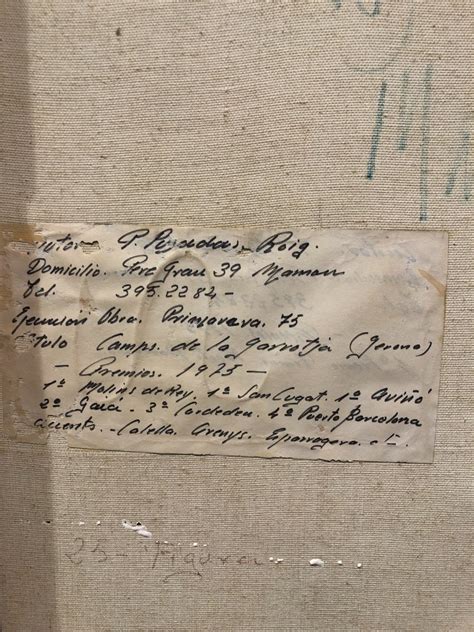 Autor P. Pujadas, Roig.
Domicilio. Pere Grau 39 Masnou
Tel. 395.22 84 -
Ejecución Obra. Primavera. 75
Titulo Camps. de la Garrotja (Gerona)
- Premios. 1975 -
1º Molins de Rey. 1º San Cugat. 1º Aviñó
2º Gaià. - 3º Cardedeu. 4º Puerto Barcelona
- Calella. Arenys. Esparraguera.
25 - Figura